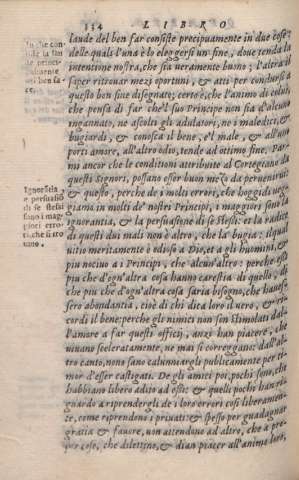 334 LIBRO
laude del ben far consiste precipuamente in due cose:
delle quali l'una è lo eleggersi un fine, doue tenda la
intentione nostra, che sia veramente buono; l'altra il
saper ritrouar mezi oportuni, & atti per condursi a
questo ben fine disegnato; certo è, che l'animo di colui,
che pensa di far che'l suo Principe non sia d'alcuno
ingannato, ne ascolti gli adulatori, ne i maledici, &
bugiardi, & conosca il bene, e'l male, & all'uno
porti amore, all'altro odio, tende ad ottimo fine. Par-
mi ancor che le conditioni attribuite al Cortegiano da
questi Signori, possano esser buon mezo da peruenirui:
& questo, perche de i molti errori, che hoggidì veg-
giamo in molti de' nostri Principi, i maggiori sono la
ignorantia, & la persuasione di se stessi: et la radice
di questi dui mali non è altro, che la bugia: ilqual
vitio meritamente è odioso a Dio, et a gli huomini, &
piu nociuo a i Principi, che ad alcun'altro: perche essi
piu che d'ogn'altra cosa hanno carestia di quello, di
che piu che d'ogn'altra cosa saria bisogno, che haues-
sero abondantia, cioè di chi dica loro il vero, & ri-
cordi il bene: perche gli nimici non son stimolati dal-
l'amore a far questi officij, anzi han piacere, che
viuano sceleratamente, ne mai si correggano: dall'al-
tro canto, non osano calunniargli publicamente per ti-
mor d'esser castigati. De gli amici poi, pochi sono, che
habbiano libero adito ad essi: & quelli pochi han ri-
guardo a riprendergli de i loro errori cosi liberamen-
te, come riprendono i priuati: & spesso per guadagnar
gratia & fauore, non attendono ad altro, che a pro-
por cose, che dilettino, & dian piacer all'animo loro,
In che con-
Ignorantia
e persuasiõ
di se stessi
sono i mag
giori erro-